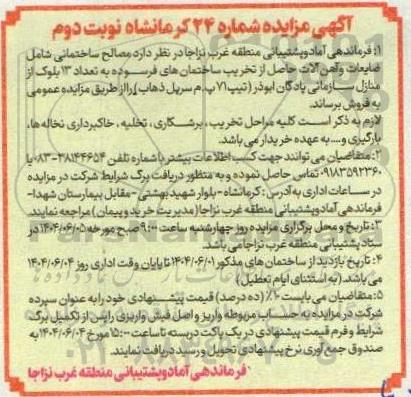 آگهی مزایده شماره ۲۴ کرمانشاه نوبت دوم
۱: فرماندهی آماد و پشتیبانی منطقه غرب نزاجا در نظر دارد مصالح ساختمانی شامل
ضایعات و آهن آلات حاصل از تخریب ساختمان های فرسوده به تعداد ۱۳ بلوک از
منازل سازمانی پادگان ابوذر (تیپ ۷۱ پ.م سرپل ذهاب) را از طریق مزایده عمومی
به فروش برساند.
لازم به ذکر است کلیه مراحل تخریب، برشکاری، تخلیه، خاکبرداری نخاله ها،
بارگیری و.... به عهده خریدار می باشد.
۲: متقاضیان می توانند جهت کسب اطلاعات بیشتر با شماره تلفن ۳۸۱۴۴۶۵۴-۰۸۳ یا
۰۹۱۸۳۵۹۲۳۶۰ تماس حاصل نموده و به منظور دریافت برگ شرایط شرکت در مزایده
در ساعات اداری به آدرس: کرمانشاه - بلوار شهید بهشتی - مقابل بیمارستان شهدا -
فرماندهی آماد و پشتیبانی منطقه غرب نزاجا (مدیریت خرید و پیمان) مراجعه نمایند.
۳: تاریخ و محل برگزاری مزایده روز چهارشنبه ساعت ۹:۰۰ صبح مورخه ۱۴۰۴/۰۶/۰۵ در
ستاد پشتیبانی منطقه غرب نزاجا می باشد.
۴: تاریخ بازدید از ساختمان های مذکور ۱۴۰۴/۰۶/۰۱ تا پایان وقت اداری روز ۱۴۰۴/۰۶/۰۴
می باشد. (به استثنای ایام تعطیل)
۵: متقاضیان می بایست ۱۰٪ (ده درصد) قیمت پیشنهادی خود را به عنوان سپرده
شرکت در مزایده به حساب مربوطه واریز و اصل فیش واریزی را پس از تکمیل برگ
شرایط و فرم قیمت پیشنهادی در یک پاکت دربسته تا ساعت ۱۵:۰۰ مورخ ۱۴۰۴/۰۶/۰۴ به
صندوق جمع آوری نرخ پیشنهادی تحویل و رسید دریافت نمایند.
فرماندهی آماد و پشتیبانی منطقه غرب نزاجا